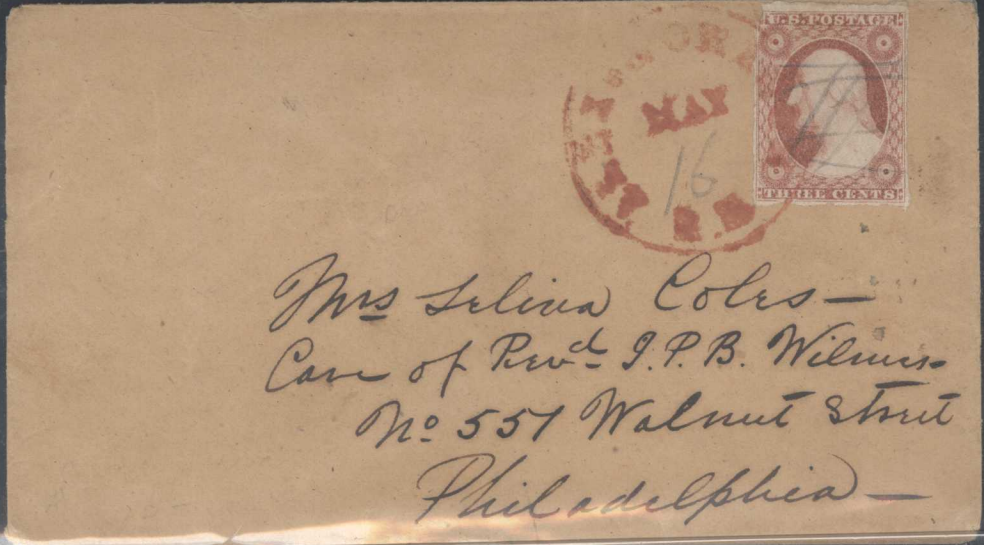 U.S. POSTAGE
THREE CENTS
MAY
16
Mrs Selina Coles —
Care of Revd I.P.B. Wilmer
No 557 Walnut Street
Philadelphia —